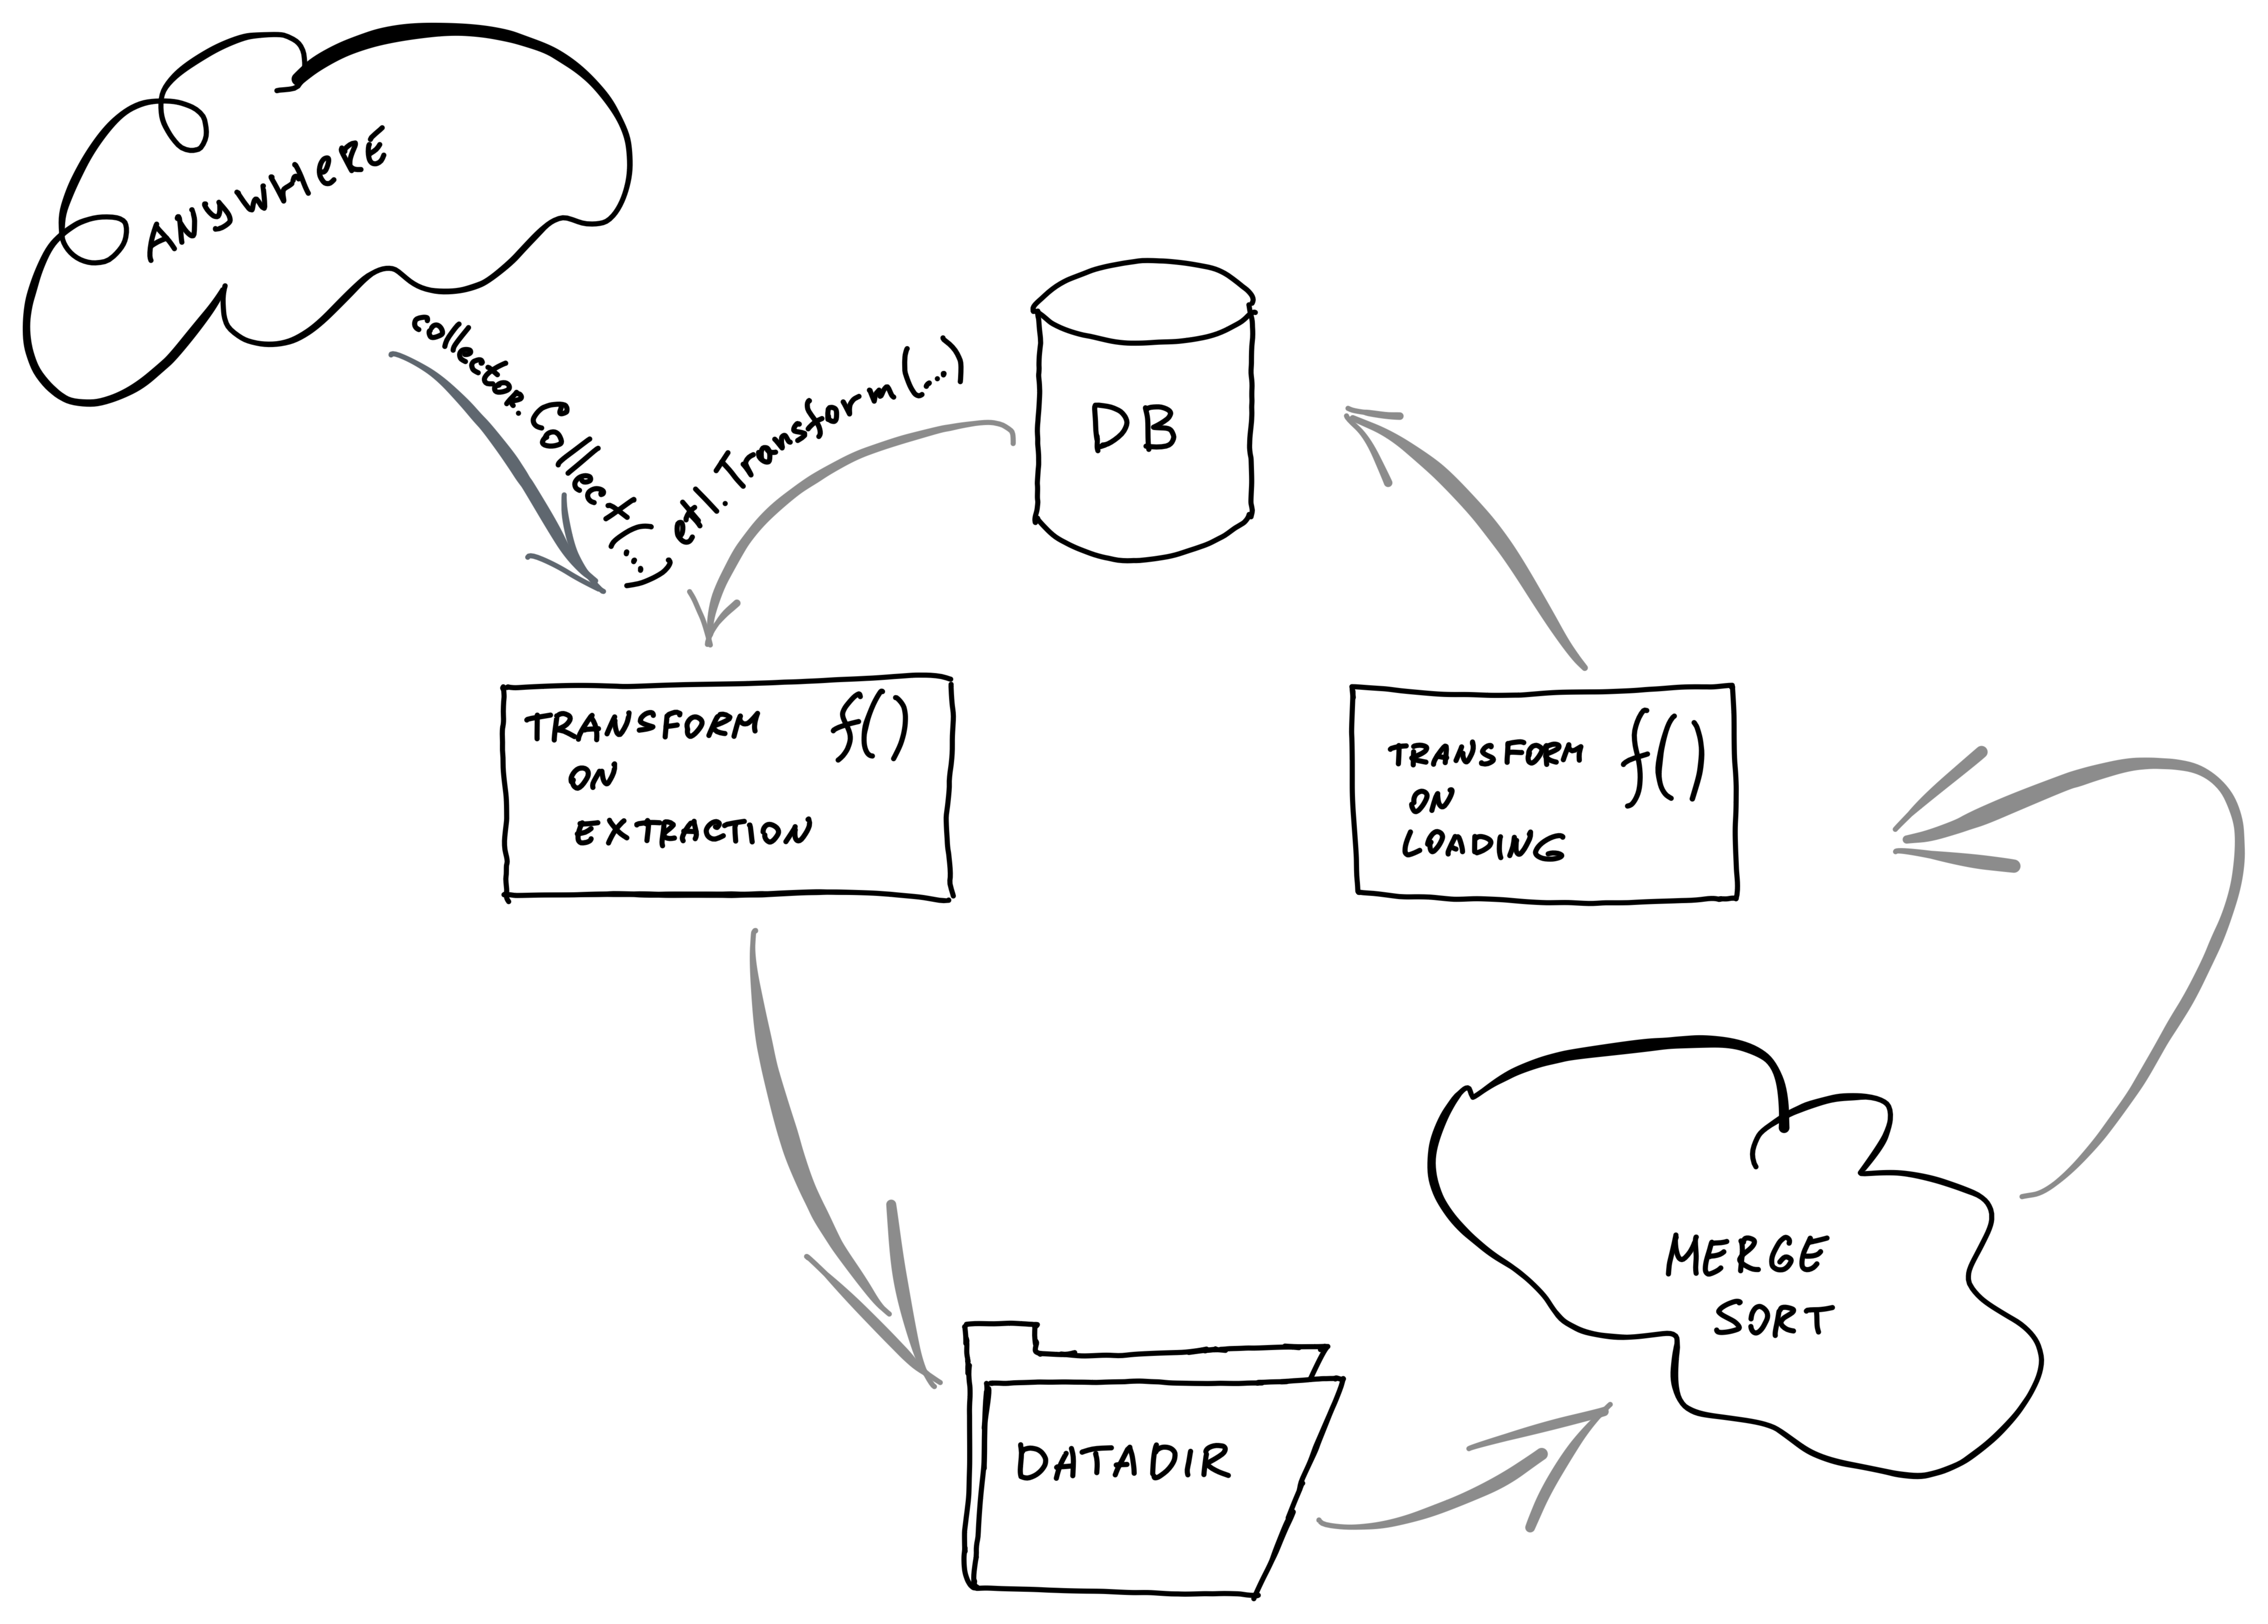 ANYWHERE
collector.Collect(...)
etl.Transform(...)
DB
TRANSFORM f()
ON
EXTRACTION
TRANSFORM f()
ON
LOADING
MERGE
SORT
DATADIR